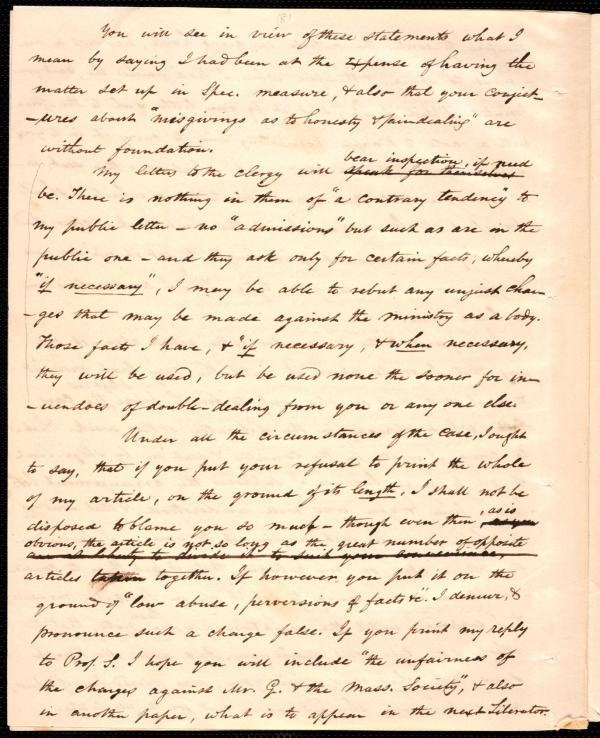 (8)
You will see in view of these statements what I
mean by saying I had been at the expense of having the
matter set up in Spec. measure, & also that your conject-
-ures about "misgivings as to honesty & fair dealing" are
without foundation.
bear inspection, if need
My letters to the clergy will speak for themselves
be. There is nothing in them of "a contrary tendency" to
my public letter – no "admissions" but such as are in the
public one – and they ask only for certain facts, whereby
"if necessary", I may be able to rebut any unjust char-
-ges that may be made against the ministry as a body.
Those facts I have, & "if necessary, & when necessary,
they will be used, but be used none the sooner for in-
-uendoes of double-dealing from you or any one else.
Under all the circumstances of the case, I ought
to say, that if you put your refusal to print the whole
of my article, on the ground of its length, I shall not be
disposed to blame you so much – though even then, as is
obvious, the article is not so long as the great number of opposite
are at liberty to divide it to suit your convenience,
articles taken together. If however you put it on the
ground of "low abuse, perversions of facts &c". I demur, &
pronounce such a charge false. If you print my reply
to Prof. S. I hope you will include "the unfairness of
the charges against Mr. G. & the Mass. Society", & also
in another paper, what is to appear in the next Liberator.